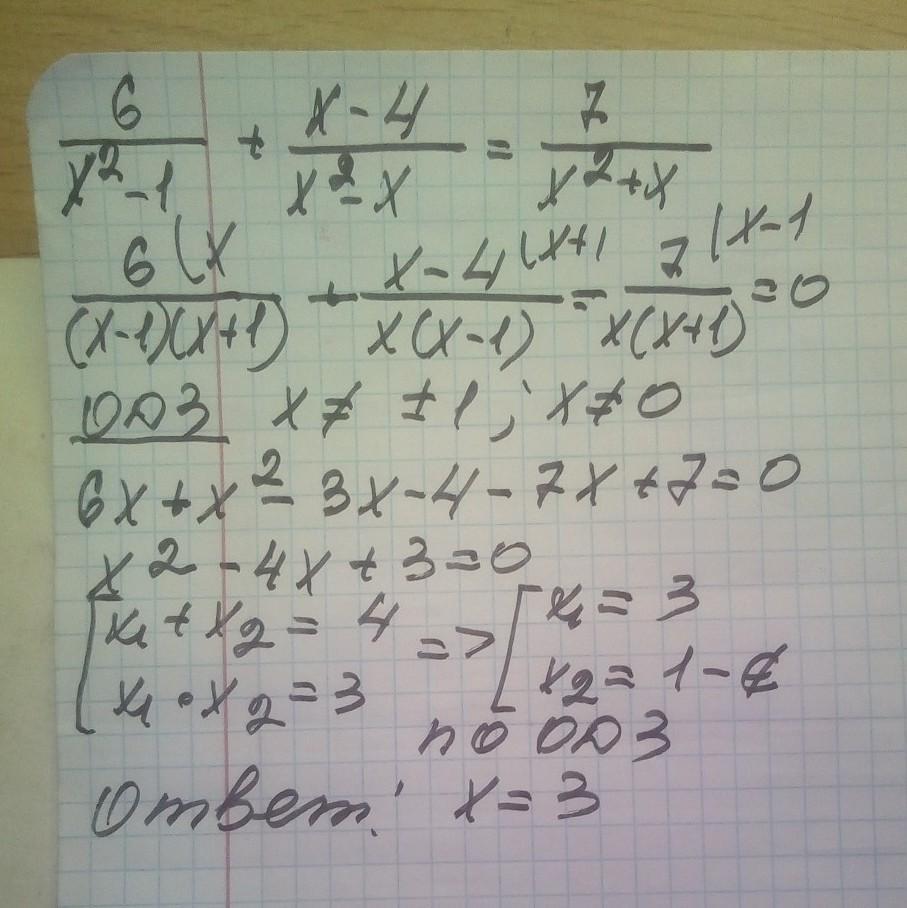 6/(x²-1) + (x-4)/(x²-x) = 7/(x²+x)
6(x/((x-1)(x+1)) + x-4(x+1/(x(x-1)) = 7(x-1/(x(x+1)) = 0
ОДЗ x ≠ ±1; x ≠ 0
6x+x²-3x-4-7x+7=0
x²-4x+3=0
[x₁+x₂=4 => [x₁=3
x₁·x₂=3 x₂=1-∉
по ОДЗ
Ответ: x=3